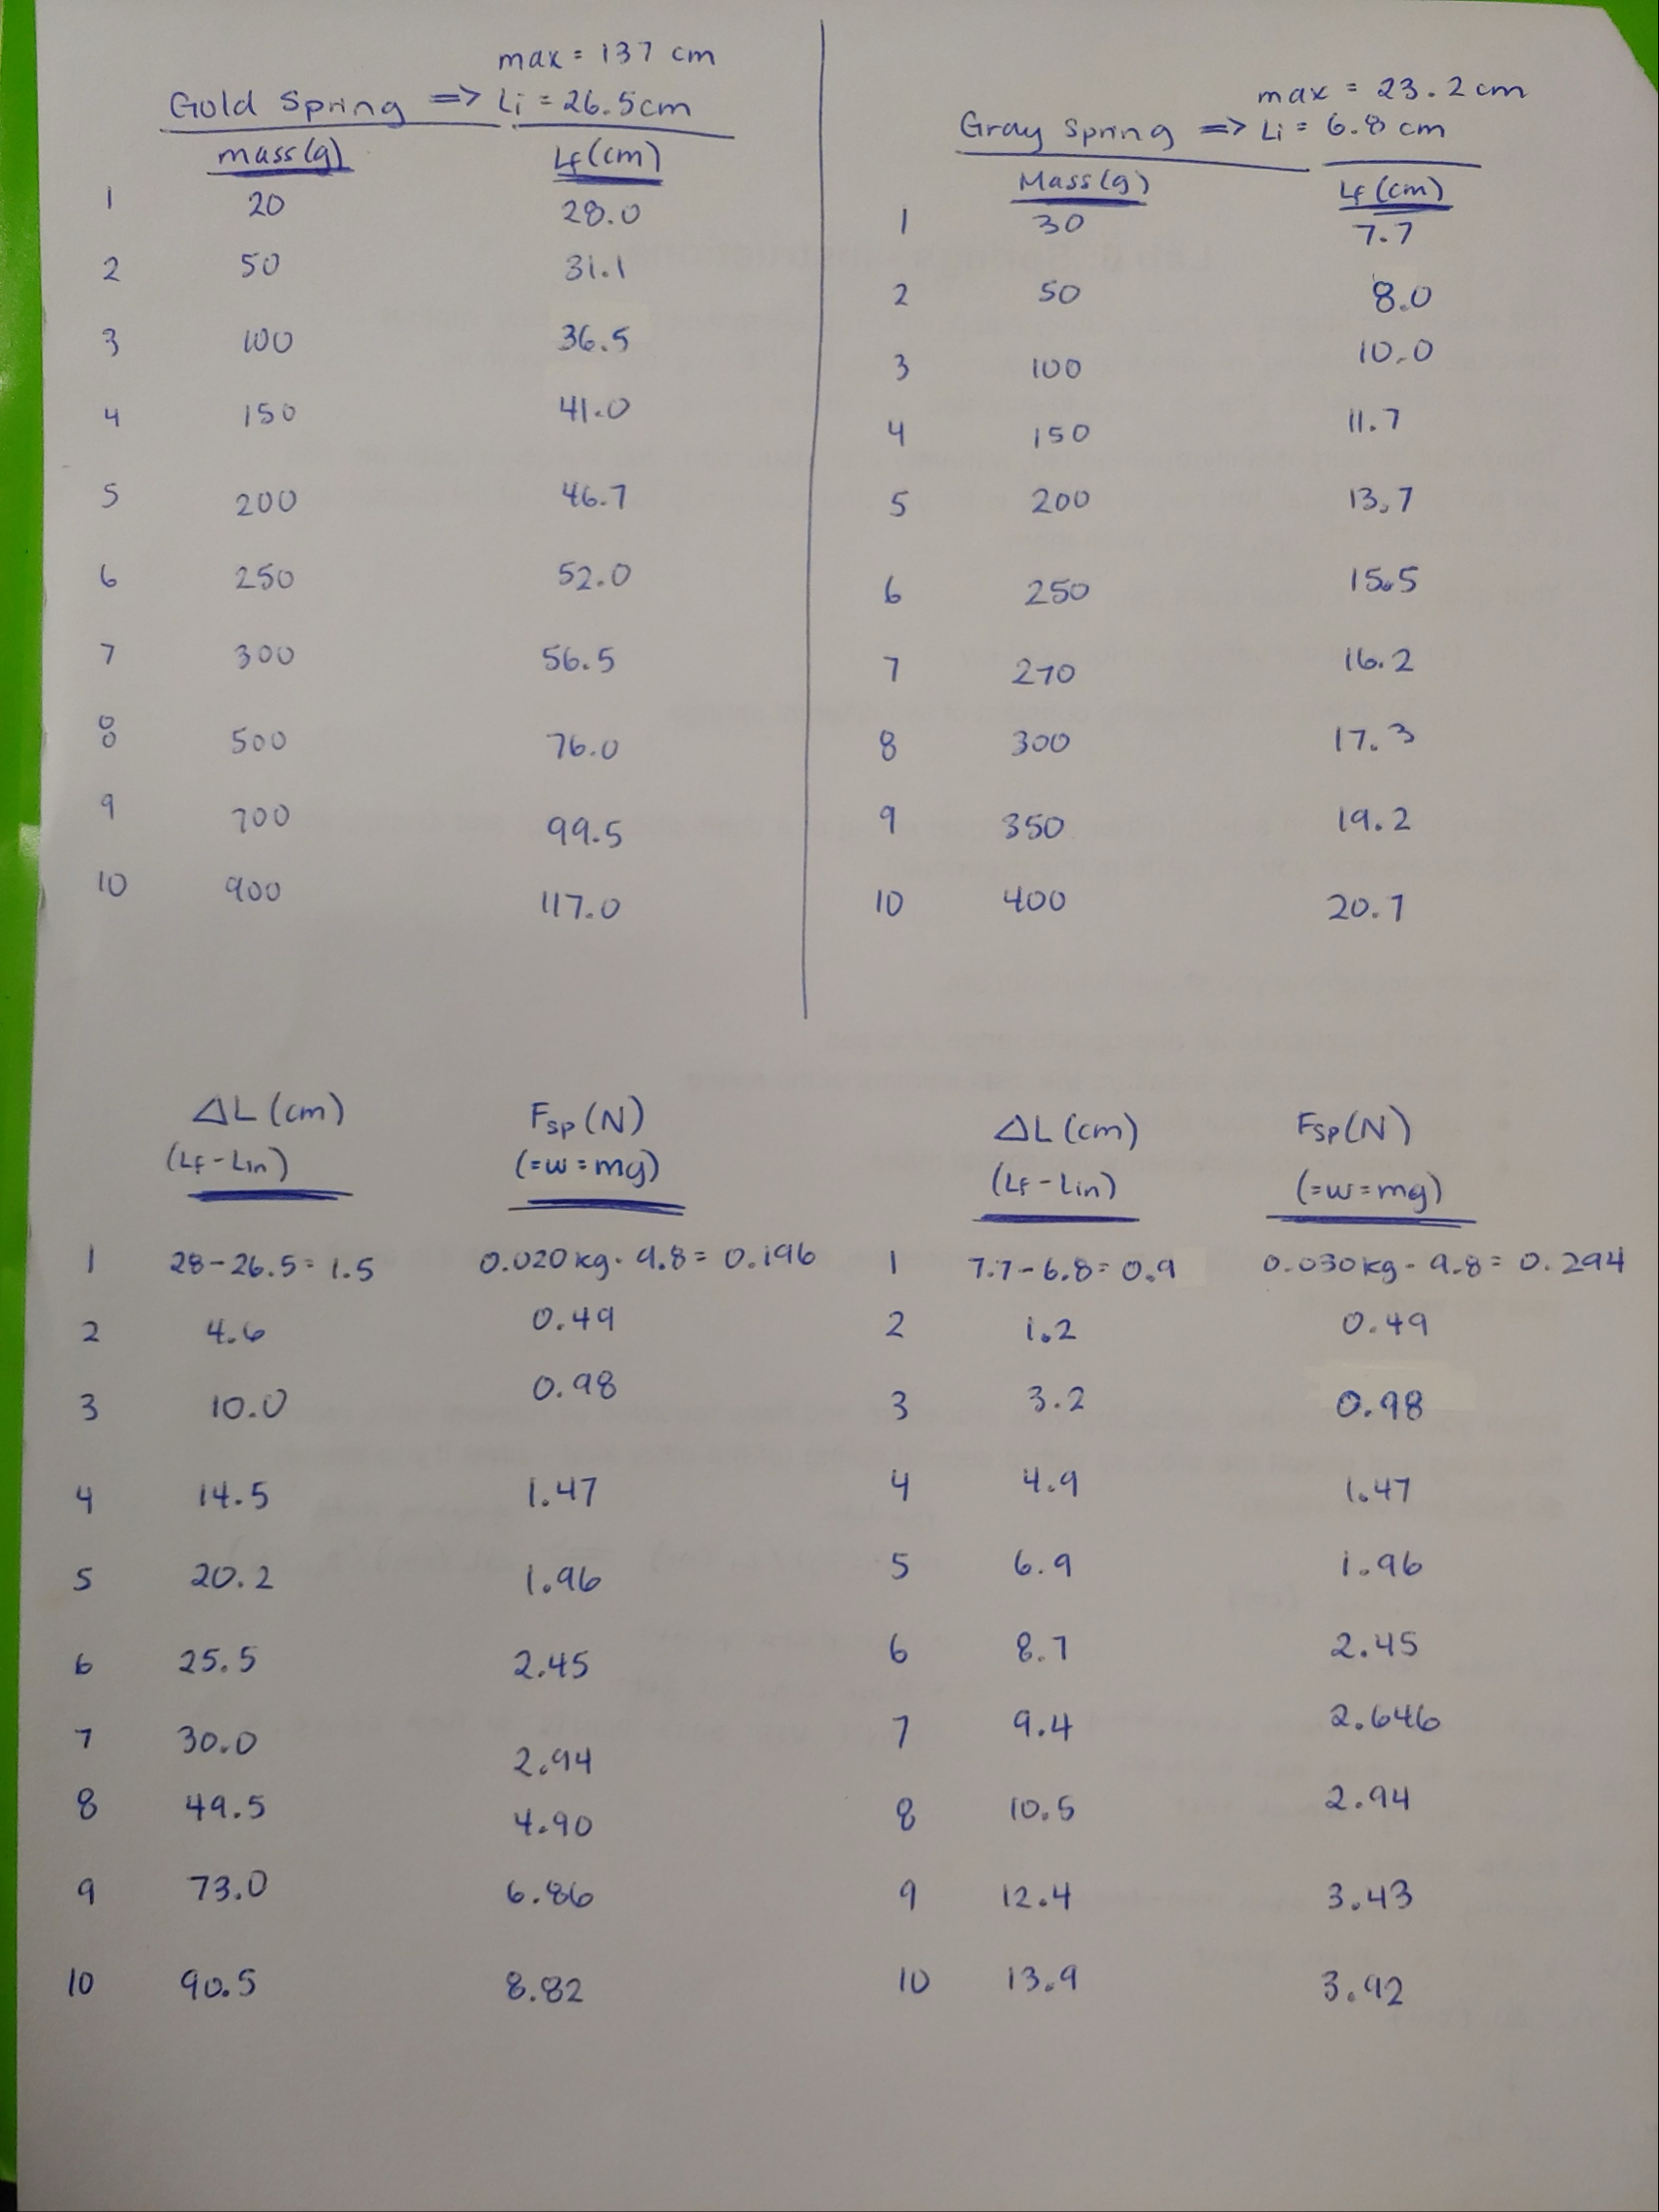 max = 137 cm
Gold Spring => Li = 26.5cm
mass(g) Lf(cm)
1 20 28.0
2 50 31.1
3 100 36.5
4 150 41.0
5 200 46.7
6 250 52.0
7 300 56.5
8 500 76.0
9 700 99.5
10 900 117.0
max = 23.2cm
Gray Spring => Li = 6.8 cm
Mass(g) Lf(cm)
1 30 7.7
2 50 8.0
3 100 10.0
4 150 11.7
5 200 13.7
6 250 15.5
7 270 16.2
8 300 17.3
9 350 19.2
10 400 20.7
ΔL(cm) Fsp(N)
(Lf-Lin) (=w=mg)
1 28-26.5=1.5 0.020kg·9.8=0.196
2 4.6 0.49
3 10.0 0.98
4 14.5 1.47
5 20.2 1.96
6 25.5 2.45
7 30.0 2.94
8 49.5 4.90
9 73.0 6.86
10 90.5 8.82
ΔL(cm) Fsp(N)
(Lf-Lin) (=w=mg)
1 7.7-6.8=0.9 0.030kg·9.8=0.294
2 1.2 0.49
3 3.2 0.98
4 4.9 1.47
5 6.9 1.96
6 8.7 2.45
7 9.4 2.646
8 10.5 2.94
9 12.4 3.43
10 13.9 3.92